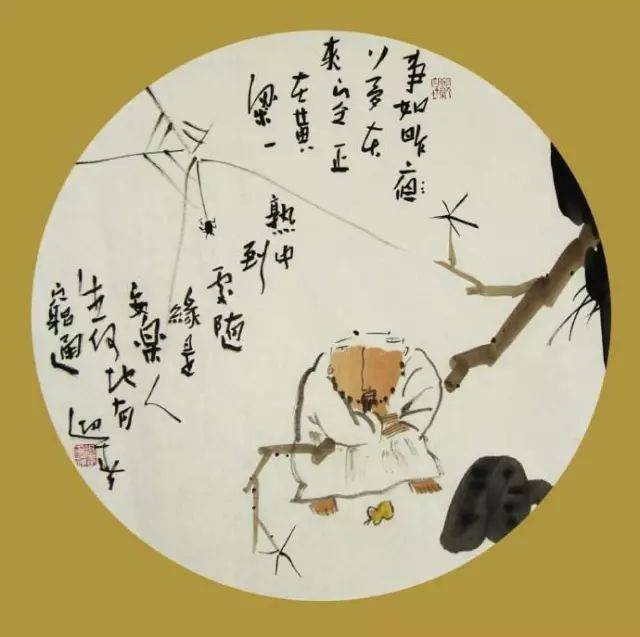 事如昨夜
夢在
正
在黃
粱一
熟中
到
處隨
緣是
安樂人
生何地有
窮通